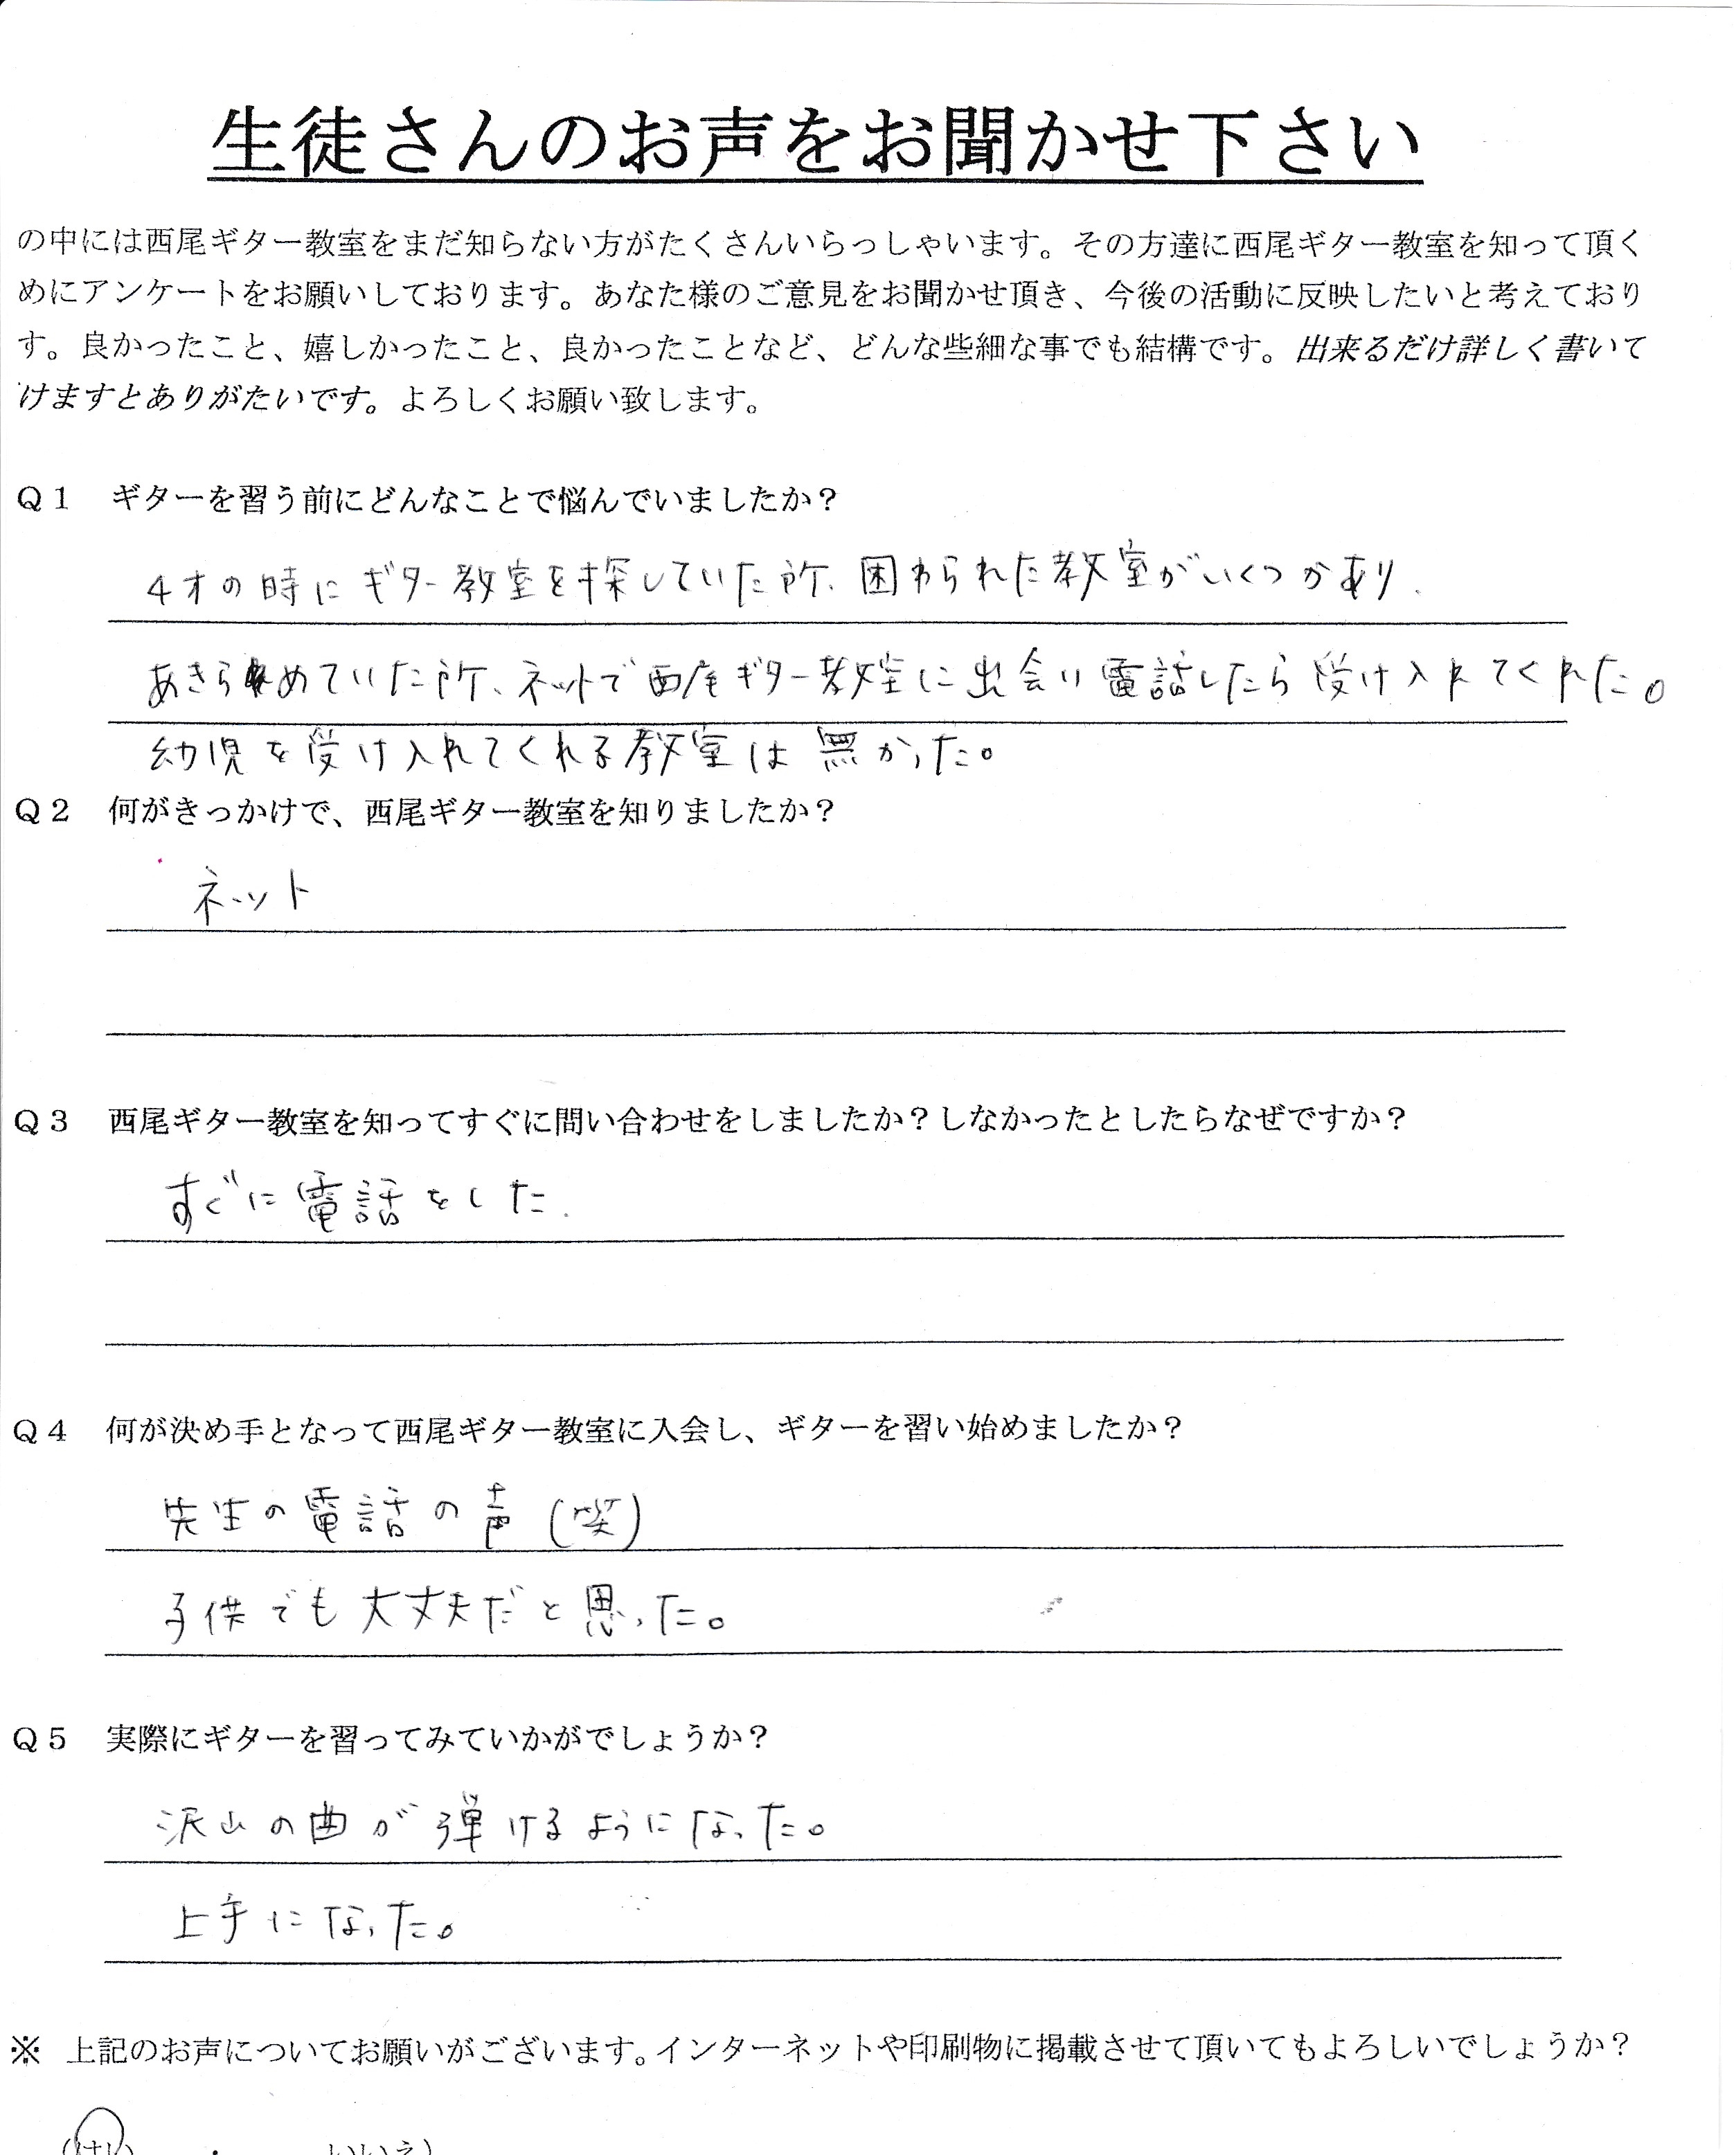 生徒さんのお声をお聞かせ下さい
の中には西尾ギター教室をまだ知らない方がたくさんいらっしゃいます。その方達に西尾ギター教室を知って頂く
めにアンケートをお願いしております。あなた様のご意見をお聞かせ頂き、今後の活動に反映したいと考えており
す。良かったこと、嬉しかったこと、良かったことなど、どんな些細な事でも結構です。出来るだけ詳しく書いて
けますとありがたいです。よろしくお願い致します。
Q1 ギターを習う前にどんなことで悩んでいましたか？
4才の時にギター教室を探していた所、困わられた教室がいくつかあり、
あきらめていた所、ネットで西尾ギター教室に出会い電話したら受け入れてくれた。
幼児を受け入れてくれる教室は無かった。
Q2 何がきっかけで、西尾ギター教室を知りましたか？
ネット
Q3 西尾ギター教室を知ってすぐに問い合わせをしましたか？しなかったとしたらなぜですか？
すぐに電話をした.
Q4 何が決め手となって西尾ギター教室に入会し、ギターを習い始めましたか？
先生の電話の声(笑)
子供でも大丈夫だと思った。
Q5 実際にギターを習ってみていかがでしょうか？
沢山の曲が弾けるようになった。
上手になった。
※ 上記のお声についてお願いがございます。インターネットや印刷物に掲載させて頂いてもよろしいでしょうか？
(はい ・ いいえ)